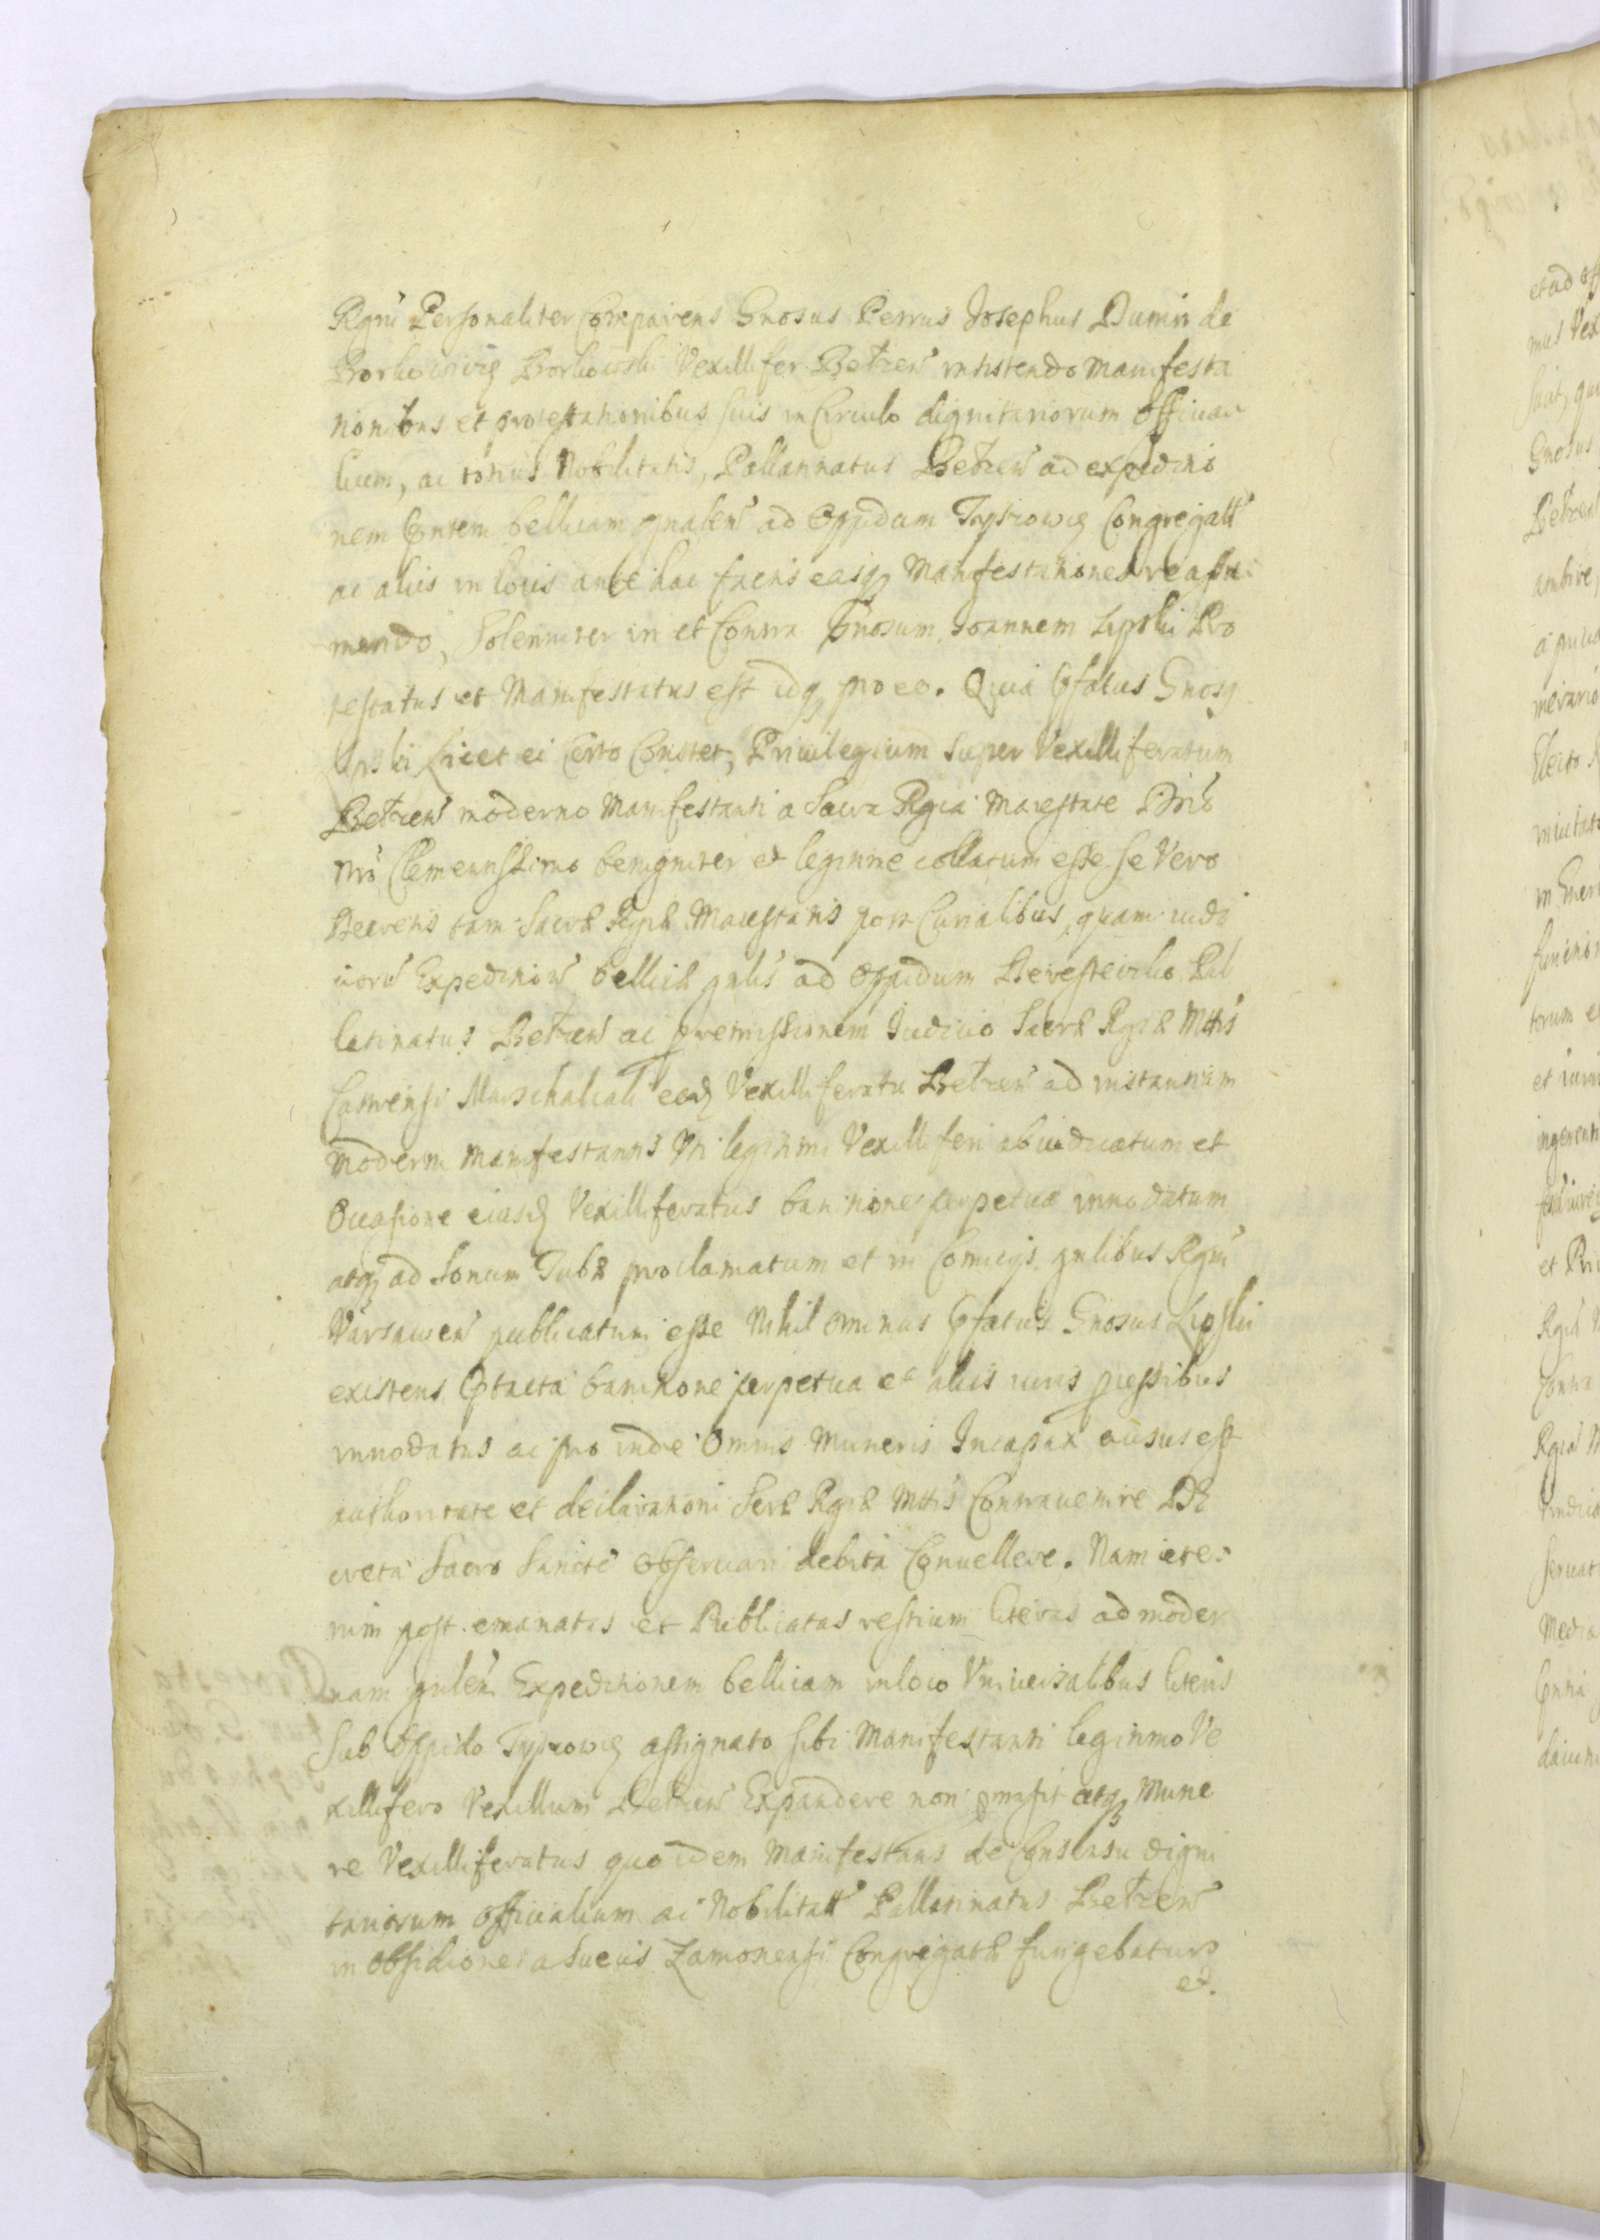 Rgni Personaliter Comparens Gnosus Petrus Josephus Dunin de
Borkowice Borkowski Vexillifer Belzen insistendo Manifesta
tionibus et protestationibus suis in Circulo dignitariorum Officia
lium, ac totius Nobilitatis, Pallatinatus Belzen ad expeditio
nem pntem bellicam gnalem ad Oppidum Tyszowce Congregatt
ac aliis in locis ante hac factis easq Manifestationes reassu
mendo, Solenniter in et Contra Gnosum Joannem Lipski Pro
testatus et Manifestatus est idq pro eo. Quia pfatus Gnosq
Lipski Licet ei Certo Constet, Priuilegium super Vexilliferatum
Belzen moderno Manifestanti a Sacra Rgia Maiestate Dno
Nro Clementissimo benigniter et legitime collatum esse se Vero
Decretis tam Sacrae Rgiae Maiestatis post Curialibus, quam iudi
ciorum Expeditionis bellicae gnlis ad Oppidum Beresteczko Pal
latinatus Belzen ac per remissionem Judicio Sacrae Rgiae Mttis
Castrensi Marschalcali eodem Vexilliferatu Belzen ad instantiam
Moderni Manifestantis Uti legitimi Vexilliferi abiudicatum et
Occasione eiusdem Vexilliferatus bannitione perpetua innodatum
atq ad Sonum Tubae proclamatum et in Comitijs gnlibus Rgni
Varsauien publicatum esse Nihilominus pfatus Gnosus Lipski
existens ptacta bannitione perpetua et aliis iuris pcessibus
innodatus ac pro inde Omnis Muneris Incapax ausus est
authoritate et declarationi Scrae Rgiae Mttis Contrauenire De
creta Sacro Sancte Obseruari debita Conuellere. Nam ete
nim post emanatas et Publicatas restium literas ad moder
nam gnlem Expeditionem bellicam in loco Vniuersalibus literis
Sub Oppido Tyszowce assignato sibi Manifestanti legitimo Ve
xillifero Vexillum Belzen Expandere non pmisit atq Mune
re Vexilliferatus quo idem Manifestans de Consensu digni
tariorum Officialium ac Nobilitatt Pallatinatus Belzen
in Obsidione a Suecis Zamoscensi Congregatae fungebatur
et.